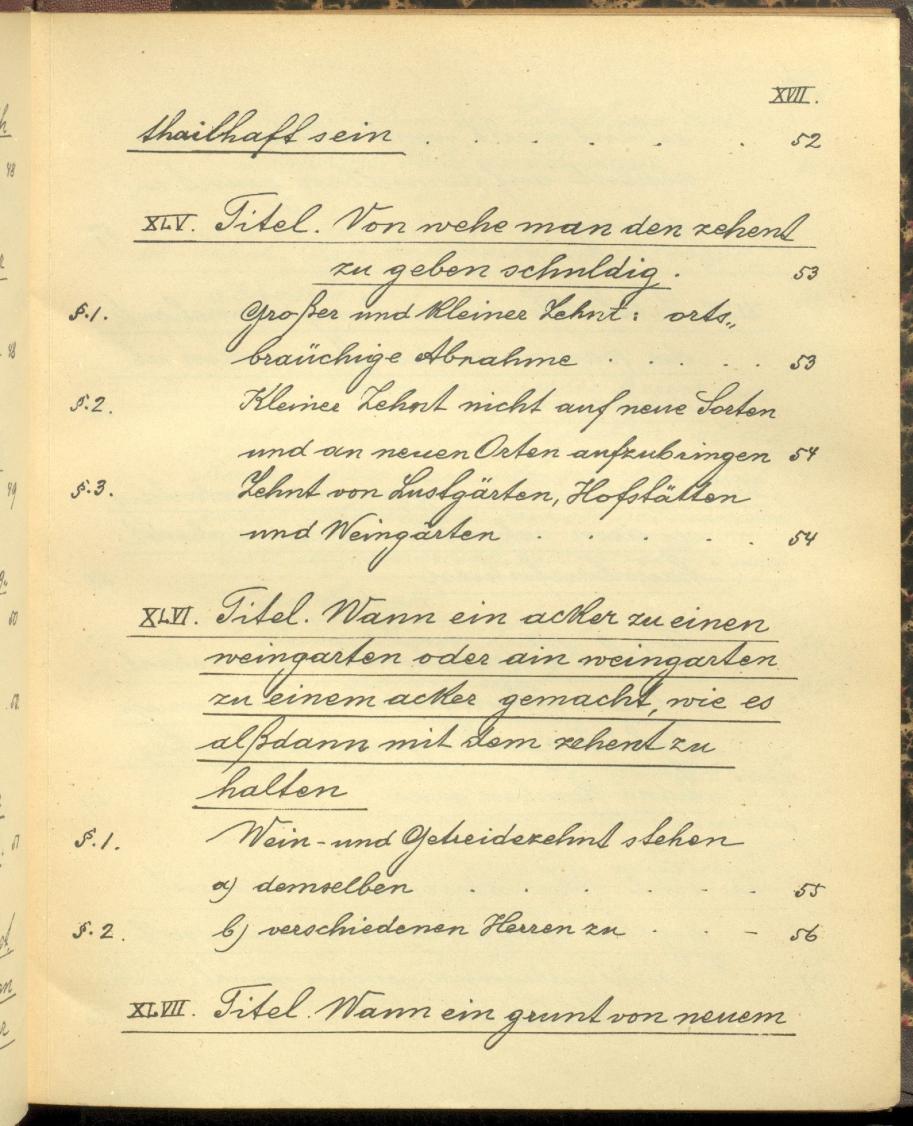 XVII.
thailhaft sein . . . . . . 52
XLV. Titel. Von wehe man den zehent
zu geben schuldig. 53
§.1. Großer und kleiner Zehnt: orts„
bräuchige Abnahme . . . . . 53
§.2. Kleiner Zehnt nicht auf neue Sorten
und an neuen Orten aufzubringen 54
§.3. Zehnt von Lustgärten, Hofstätten
und Weingärten . . . . . 54
XLVI. Titel. Wann ein acker zu einen
weingarten oder ain weingarten
zu einem acker gemacht, wie es
alßdann mit dem zehent zu
halten
§.1. Wein- und Getreidezehnt stehen
a) demselben . . . . . . 55
§.2. b) verschiedenen Herren zu . . - 56
XLVII. Titel. Wann ein grunt von neuem